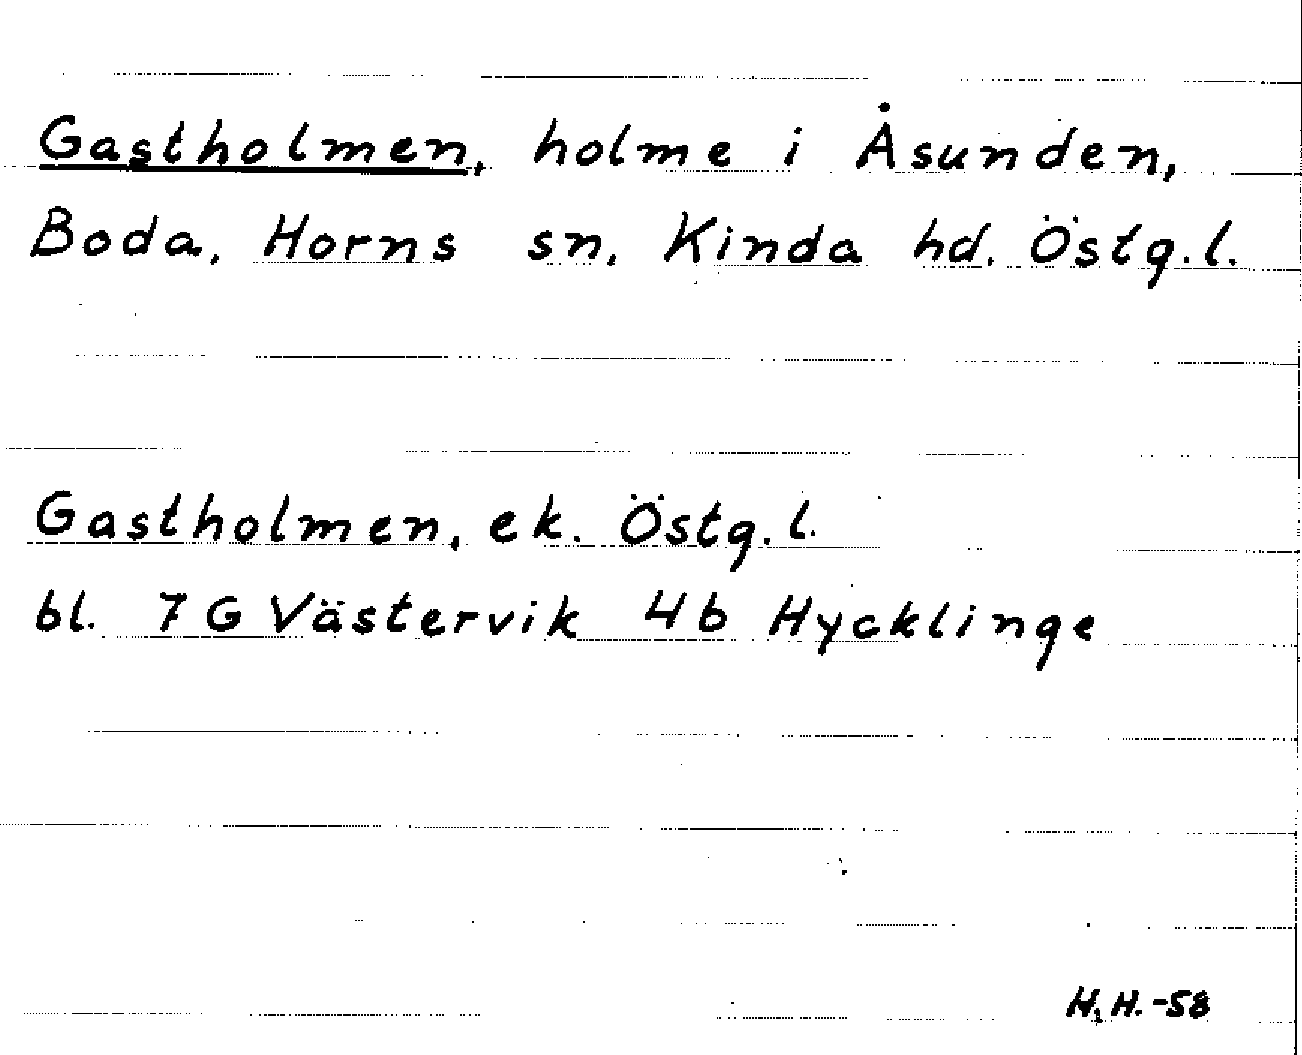 Gastholmen, holme i Åsunden,
Boda, Horns sn, Kinda hd. Östg.l.
Gastholmen, ek. Östg.l.
bl. 7 G Västervik 4b Hycklinge
H.H.-58